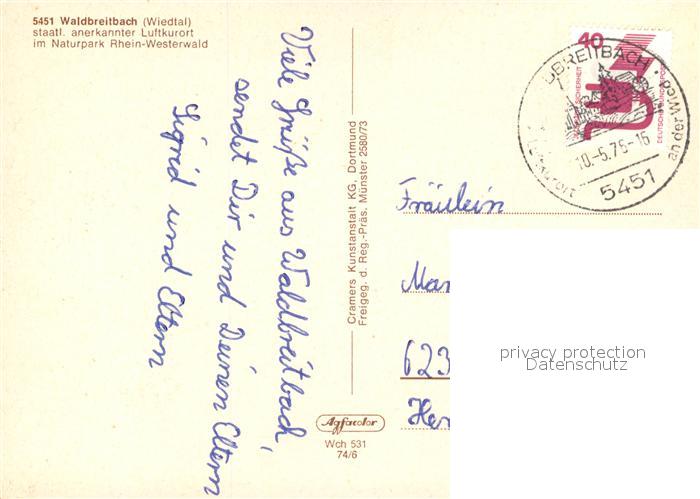 5451 Waldbreitbach (Wiedtal)
staatl. anerkannter Luftkurort
im Naturpark Rhein-Westerwald
Viele Grüße aus Waldbreitbach,
sendet Dir und Deinen Eltern
Sigrid und Eltern
Cramers Kunstanstalt KG, Dortmund
Freigeg. d. Reg.-Präs. Münster 2580/73
Agfacolor
Wch 531
74/6
40
SICHERHEIT
DEUTSCHE BUNDESPOST
DBREITBACH
an der Wied
10-5.75-16
5451
Fräulein
Man
623
privacy protection
Datenschutz